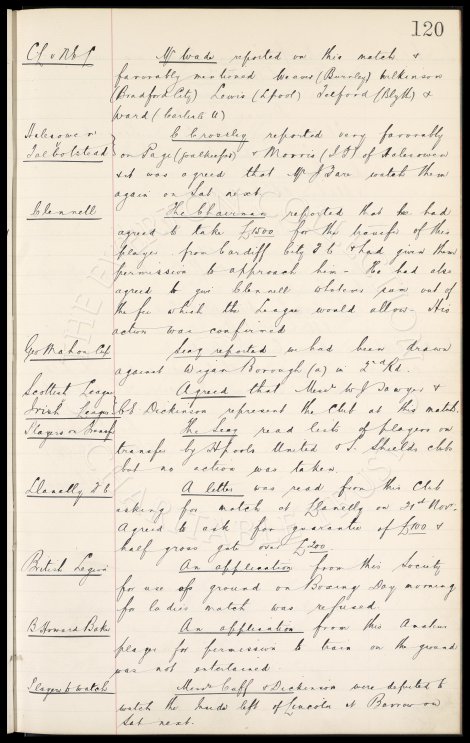 120
C.L. v N.E.L
Mr Wade reported on this match &
favorably mentioned Weaver (Burnley) Wilkinson
(Bradford City) Lewis (L'pool) Telford (Blyth) &
Ward (Carlisle U)
Halesowen v
C Crossley reported very favorably
on Page (goalkeeper) & Morris (I.F) of Halesowen
& it was agreed that Mr J Fare watch them
again on Sat next.
Clennell
The Chairman reported that he had
agreed to take £1500 for the transfer of this
player from Cardiff City F C & had given them
permission to approach him - He had also
agreed to give Clennell whatever sum out of
the fee which the League would allow - His
action was confirmed
Geo Mahon Cup
Secy reported we had been drawn
against Wigan Borough (a) in 2nd Rd.
Scottish League
Agreed that Messrs W J Sawyer &
Irish League
B. Dickinson represent the Club at this match.
Players on Transfer
The Secy read lists of players on
transfer by H'pools United & S. Shields clubs
but no action was taken.
Llanelly F C
A letter was read from this Club
asking for match at Llanelly on 21st Nov.
Agreed to ask for guarantee of £100 &
half gross gate over £200
British Legion
An application from this Society
for use of ground on Boxing Day morning
for ladies match was refused.
B Howard Baker
An application from this Amateur
player for permission to train on the ground
was not entertained.
Players to watch
Messrs Cuff & Dickinson were deputed to
watch the Inside left of Lincoln at Barrow on
Sat next.